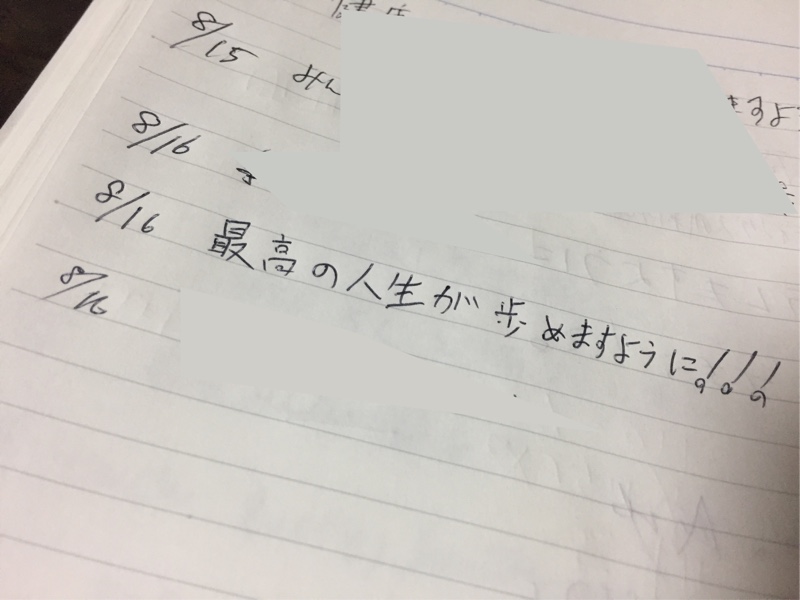 8/15 みん ますよ
8/16
8/16 最高の人生が歩めますように!!!
8/16